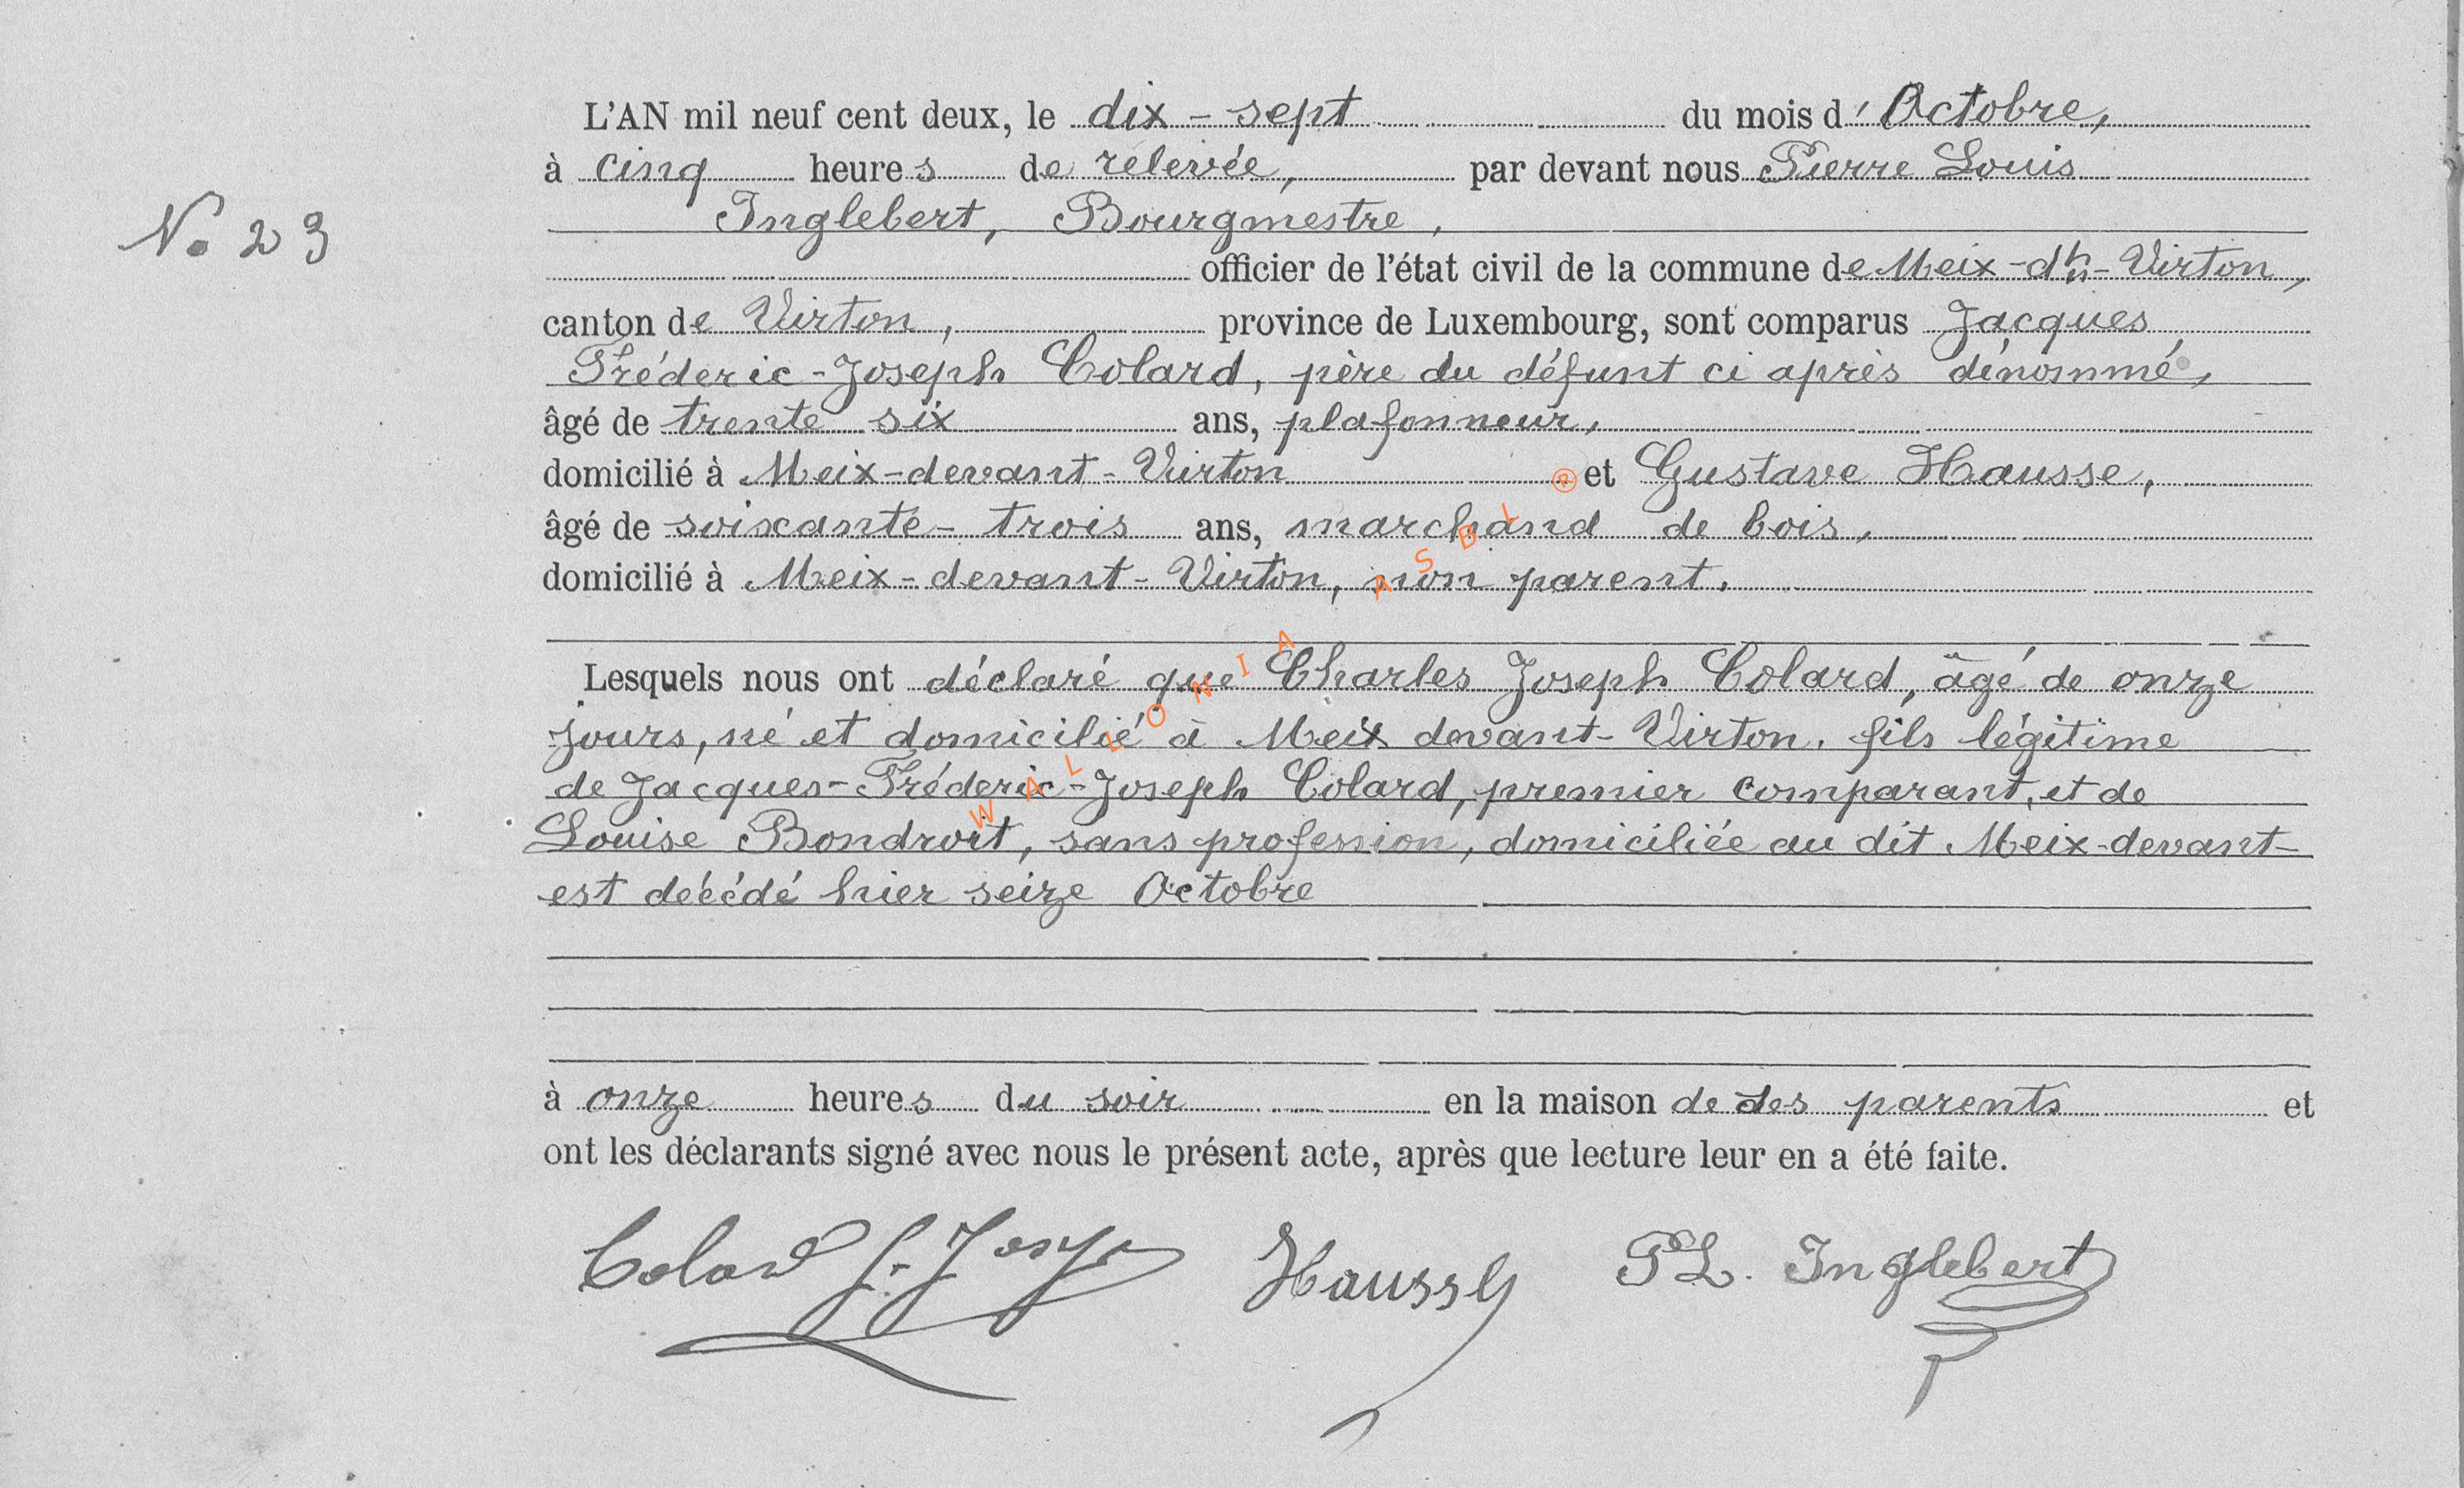 L'AN mil neuf cent deux, le dix-sept du mois d'Octobre,
à cinq heures de relevée, par devant nous Pierre Louis
N° 23
Inglebert, Bourgmestre,
officier de l'état civil de la commune de Meix-dt-Virton,
canton de Virton, province de Luxembourg, sont comparus Jacques
Fréderic-Joseph Colard, père du défunt ci après dénommé,
âgé de trente six ans, plafonneur,
domicilié à Meix-devant-Virton et Gustave Hausse,
âgé de soixante-trois ans, marchand de bois,
domicilié à Meix-devant-Virton, non parent.
Lesquels nous ont déclaré que Charles Joseph Colard, âgé de onze
jours, né et domicilié à Meix devant-Virton, fils légitime
de Jacques-Fréderic-Joseph Colard, premier comparant, et de
Louise Bondroit, sans profession, domiciliée au dit Meix-devant-
est décédé hier seize Octobre
à onze heures du soir en la maison de ses parents et
ont les déclarants signé avec nous le présent acte, après que lecture leur en a été faite.
Colard Hausse PL. Inglebert
WALLONIA ASBL ®